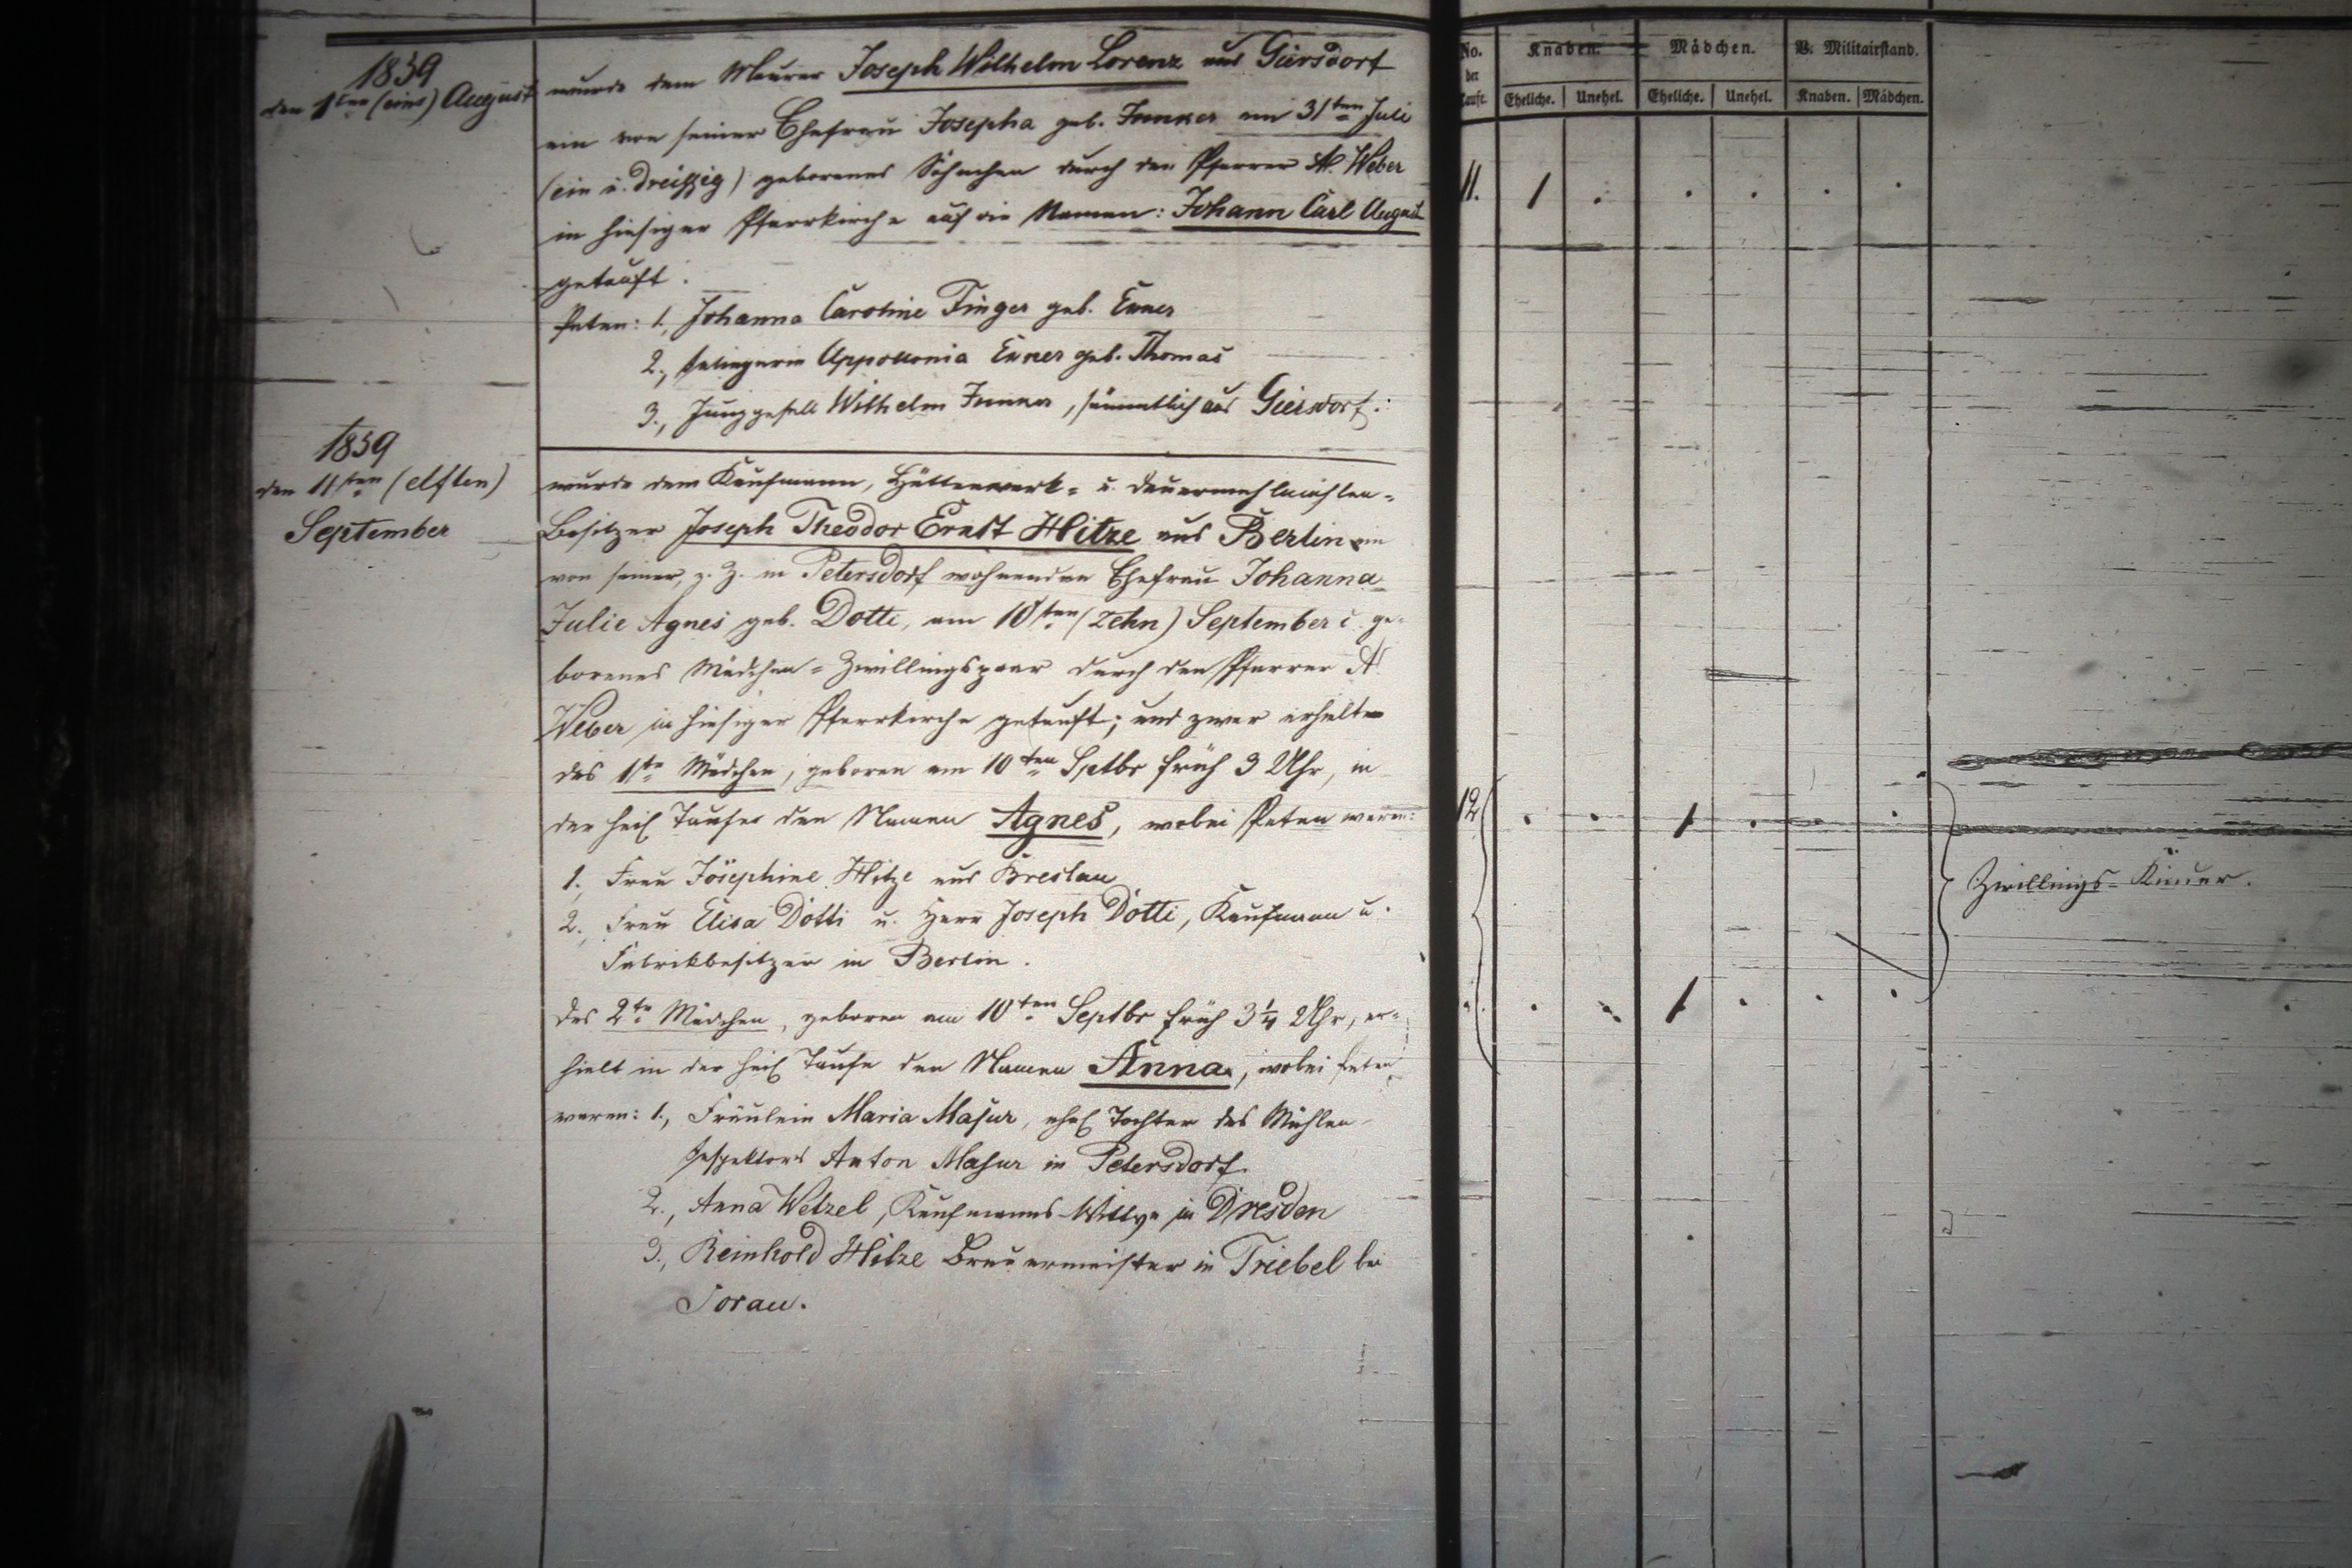 1859
den 1ten (eins) August
wurde dem Maurer Joseph Wilhelm Lorenz aus Giersdorf
ein von seiner Ehefrau Josepha geb. am 31ten Juli
(ein u. dreißig) geborenes Söhnchen durch den Pfarrer A. Weber
in hiesiger Pfarrkirche auf die Namen: Johann Carl August
getauft.
Paten: 1., Johanna Caroline Finger geb. Exner
2., Appollonia Exner geb. Thomas
3., Junggesell Wilhelm , sämmtlich aus Giersdorf.
1859
den 11ten (elften)
September
wurde dem Kaufmann, Hüttenwerk- u. Dauermehlmühlen-
Besitzer Joseph Theodor Ernst Hitze aus Berlin ein
von seiner, z. Z. in Petersdorf wohnenden Ehefrau Johanna
Julie Agnes geb. Dotti, am 10ten (zehn) September c. ge-
borenes Mädchen-Zwillingspaar durch den Pfarrer A.
Weber in hiesiger Pfarrkirche getauft; und zwar erhielt
das 1te Mädchen, geboren am 10ten Sptbr früh 3 Uhr, in
der heil Taufe den Namen Agnes, wobei Paten waren:
1., Frau Josephine Hitze aus Breslau
2., Frau Elisa Dotti u. Herr Joseph Dotti, Kaufmann u.
Fabrikbesitzer in Berlin.
das 2te Mädchen, geboren am 10ten Septbr früh 3 1/4 Uhr, er-
hielt in der heil Taufe den Namen Anna, wobei Paten
waren: 1., Fräulein Maria Masur, ehel Tochter des Mühlen-
Inspektors Anton Masur in Petersdorf.
2., Anna Wetzel, Kaufmanns-Wittwe in Dresden
3., Reinhold Hitze Brauermeister in Triebel bei
Sorau.
No. der Taufe. Knaben. Mädchen. B. Militairstand.
Eheliche. Unehel. Eheliche. Unehel. Knaben. Mädchen.
11. 1 . . . . .
12 . . 1 . . .
Zwillings-Kinder.
. . . 1 . . .